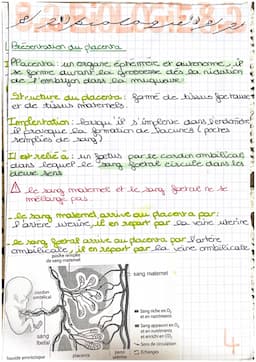 Présentation du placenta
Placenta : un organe éphémère et autonome, il
se forme durant la grossesse dès la nidation
de l'embryon dans la muqueuse.
Structure du placenta : formé de tissus foetaux
et de tissus maternels.
Implantation : lorsqu'il s'implante dans l'endomètre
il provoque la formation de lacunes (poches
remplies de sang)
Il est relié à : un foetus par le cordon ombilical
dans lequel le sang foetal circule dans les
deux sens
⚠ le sang maternel et le sang foetal ne se
mélange pas.
- le sang maternel arrive au placenta par :
l'artère utérine, il en repart par la veine utérine
- le sang foetal arrive au placenta par l'artère
ombilicale, il en repart par la veine ombilicale
poche remplie
de sang maternel
sang maternel
cordon
ombilical
Sang riche en O₂
et en nutriments
Sang appauvri en O₂
et en nutriments
et enrichi en CO₂
Sens de circulation
Échanges
sang
fœtal
liquide amniotique
placenta
paroi
utérine
4